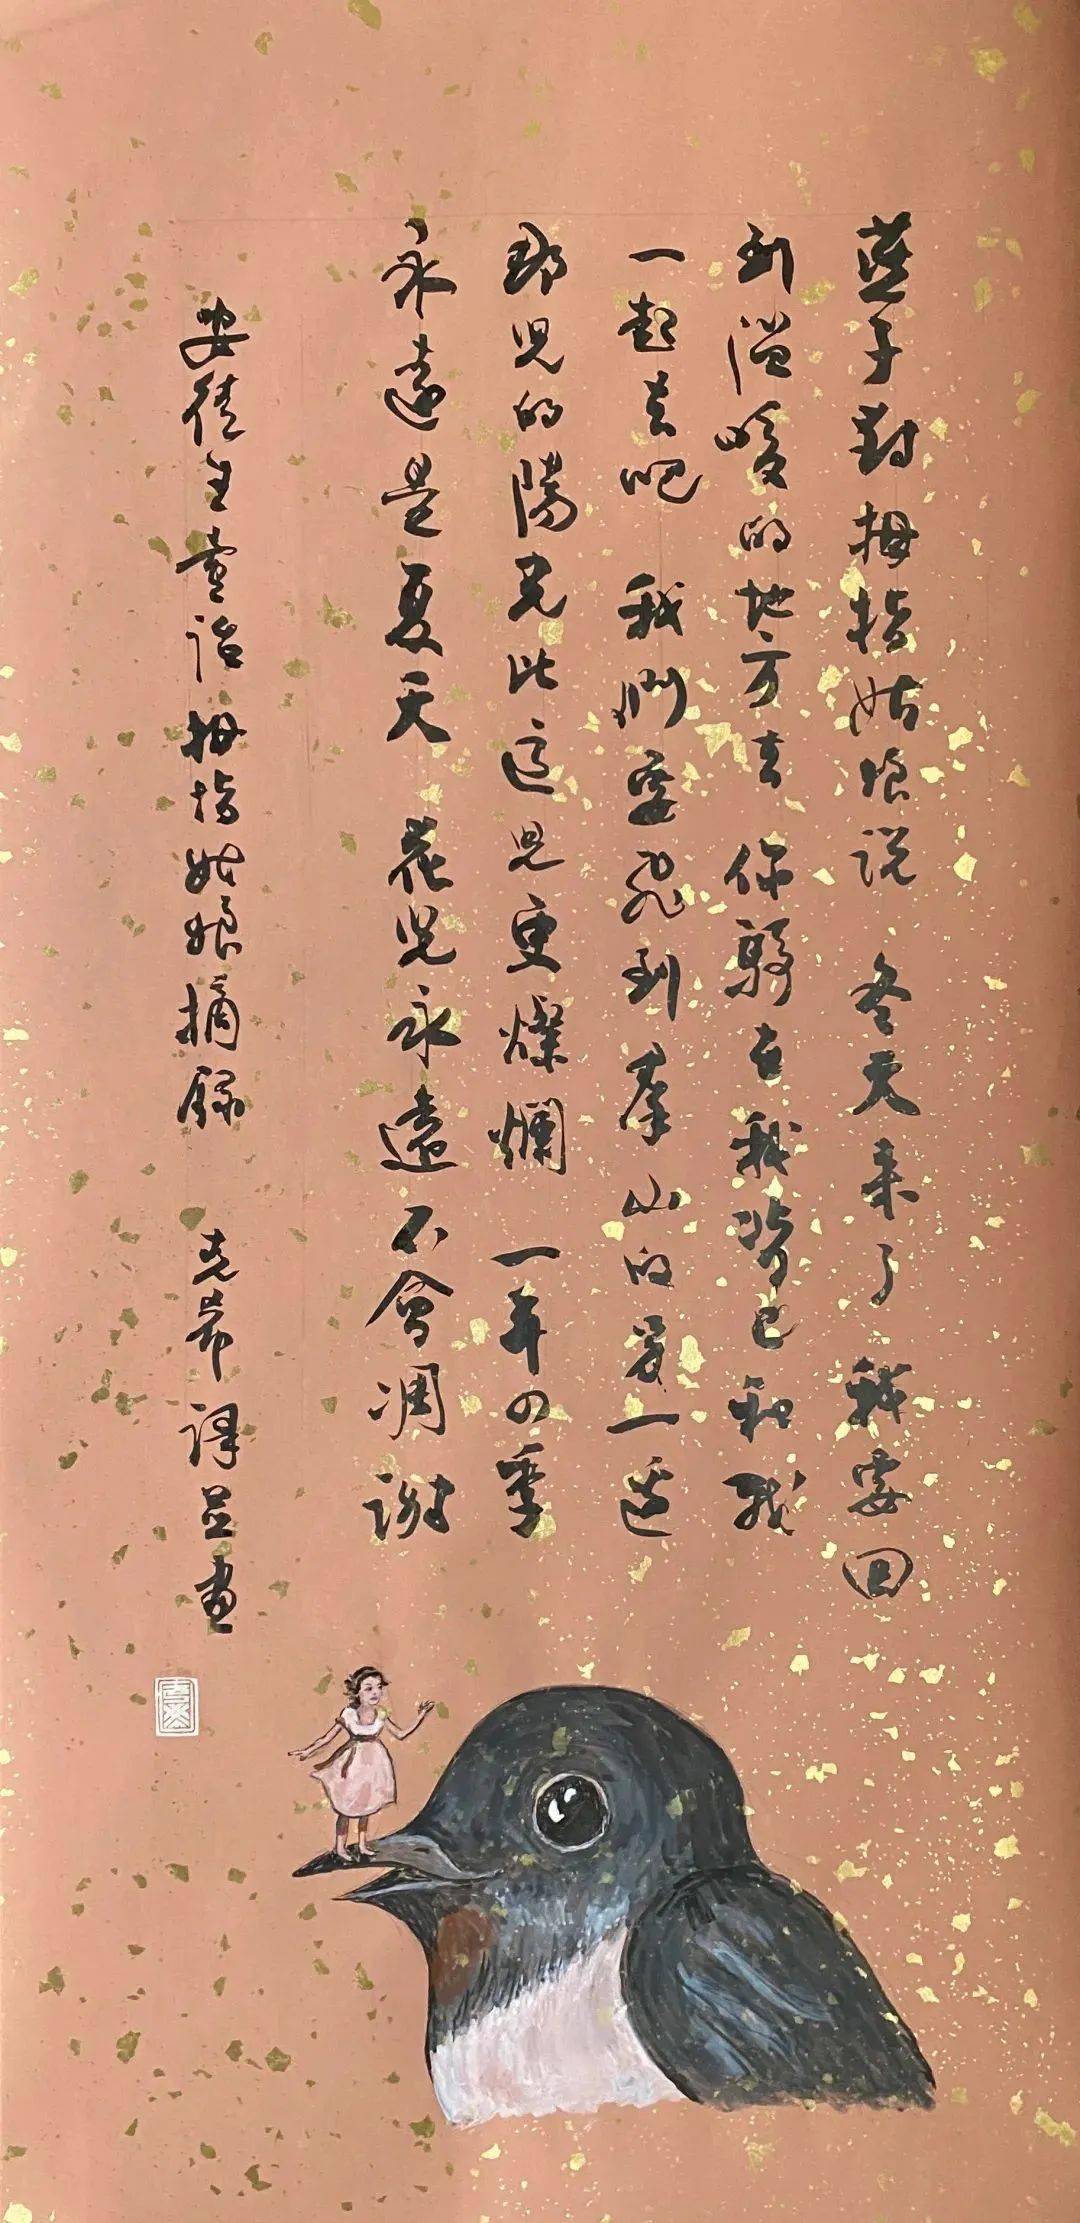 燕子對拇指姑娘説 冬天來了 我要回
到溫暖的地方去 你騎在我背上和我
一起去吧 我們要飛到羣山的另一邊
那兒的陽光比這兒更燦爛 一年四季
永遠是夏天 花兒永遠不會凋謝
安徒生童話拇指姑娘摘錄 克希譯並畫